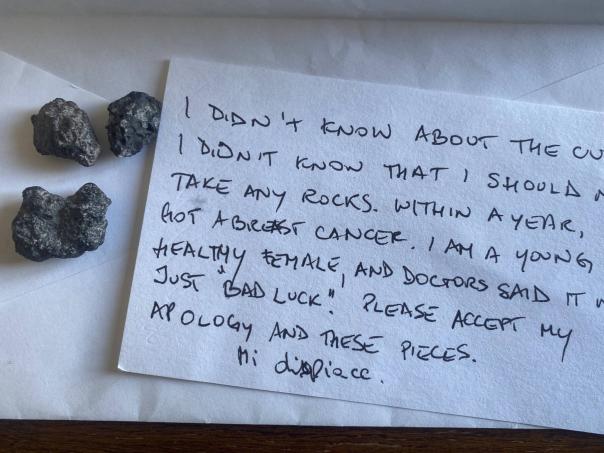 I DIDN'T KNOW ABOUT THE
I DIDN'T KNOW THAT I SHOULD
TAKE ANY ROCKS. WITHIN A YEAR,
GOT A BREAST CANCER. I AM A YOUNG
HEALTHY FEMALE, AND DOCTORS SAID IT
JUST "BAD LUCK". PLEASE ACCEPT MY
APOLOGY AND THESE PIECES.
Mi dispiace.